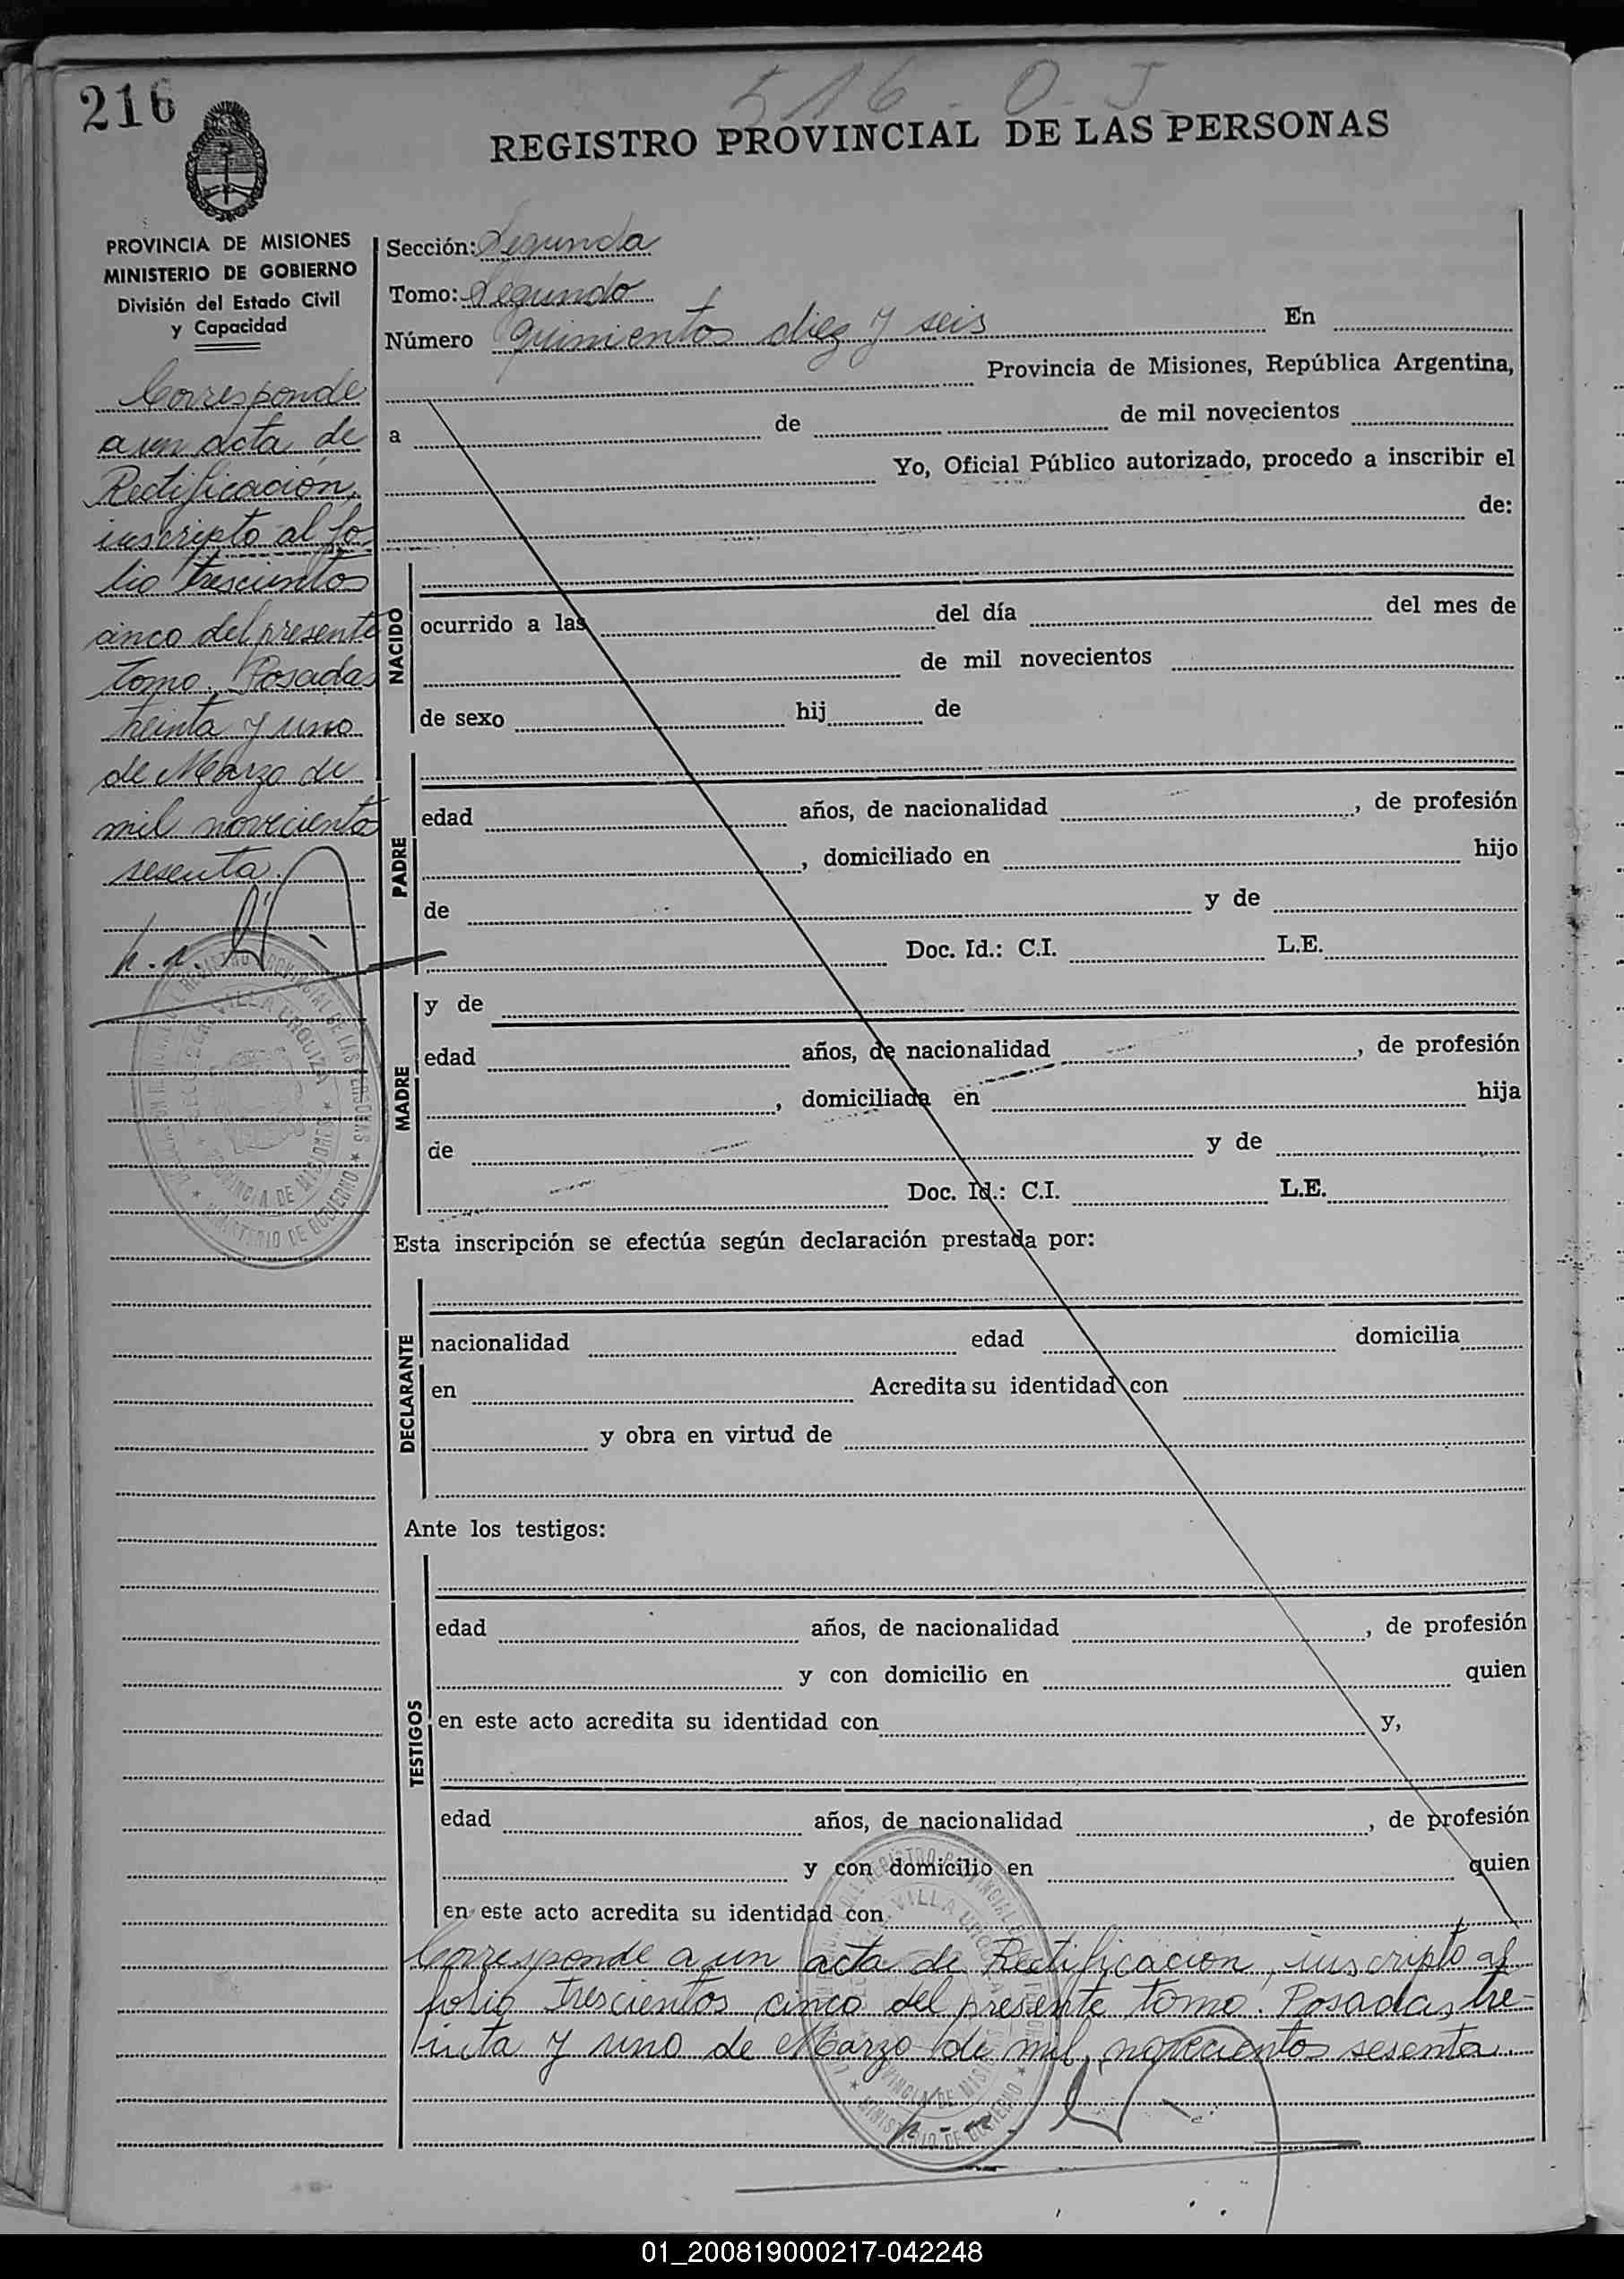 216
516 - O. J.
REGISTRO PROVINCIAL DE LAS PERSONAS
PROVINCIA DE MISIONES
MINISTERIO DE GOBIERNO
División del Estado Civil
y Capacidad
Corresponde
a un acta de
Rectificación,
inscripto al fo-
lio trescientos
cinco del presente
tomo. Posadas
treinta y uno
de Marzo de
mil novecientos
sesenta.
Sección: Segunda
Tomo: Segundo
Número quinientos diez y seis En
Provincia de Misiones, República Argentina,
a de de mil novecientos
Yo, Oficial Público autorizado, procedo a inscribir el
de:
NACIDO
ocurrido a las del día del mes de
de mil novecientos
de sexo hij de
PADRE
edad años, de nacionalidad , de profesión
, domiciliado en hijo
de y de
Doc. Id.: C.I. L.E.
MADRE
y de
edad años, de nacionalidad , de profesión
, domiciliada en hija
de y de
Doc. Id.: C.I. L.E.
Esta inscripción se efectúa según declaración prestada por:
DECLARANTE
nacionalidad edad domicilia
en Acredita su identidad con
y obra en virtud de
Ante los testigos:
TESTIGOS
edad años, de nacionalidad , de profesión
y con domicilio en quien
en este acto acredita su identidad con y,
edad años, de nacionalidad , de profesión
y con domicilio en quien
en este acto acredita su identidad con
Corresponde a un acta de Rectificación, inscripto al
folio trescientos cinco del presente tomo. Posadas, tre-
inta y uno de Marzo de mil novecientos sesenta.
VILLA URQUIZA
PROVINCIA DE MISIONES
MINISTERIO DE GOBIERNO
01_200819000217-042248